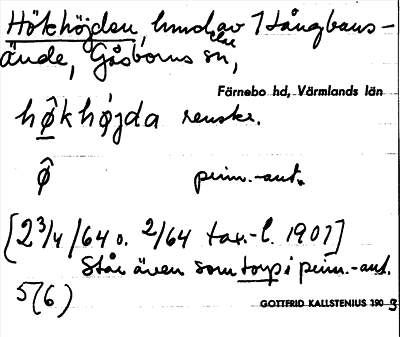 Hökhöjden, hmd av Tångbans-
ände, Gåsborns sn,
Färnebo hd, Värmlands län
hö̂khö́jda renskr.
ö̂ prim.-ant.
[2 3/4 /64 o. 2/64 tax.-l. 1901]
Står även som torp i prim.-ant.
5(6)
GOTTFRID KALLSTENIUS 1909